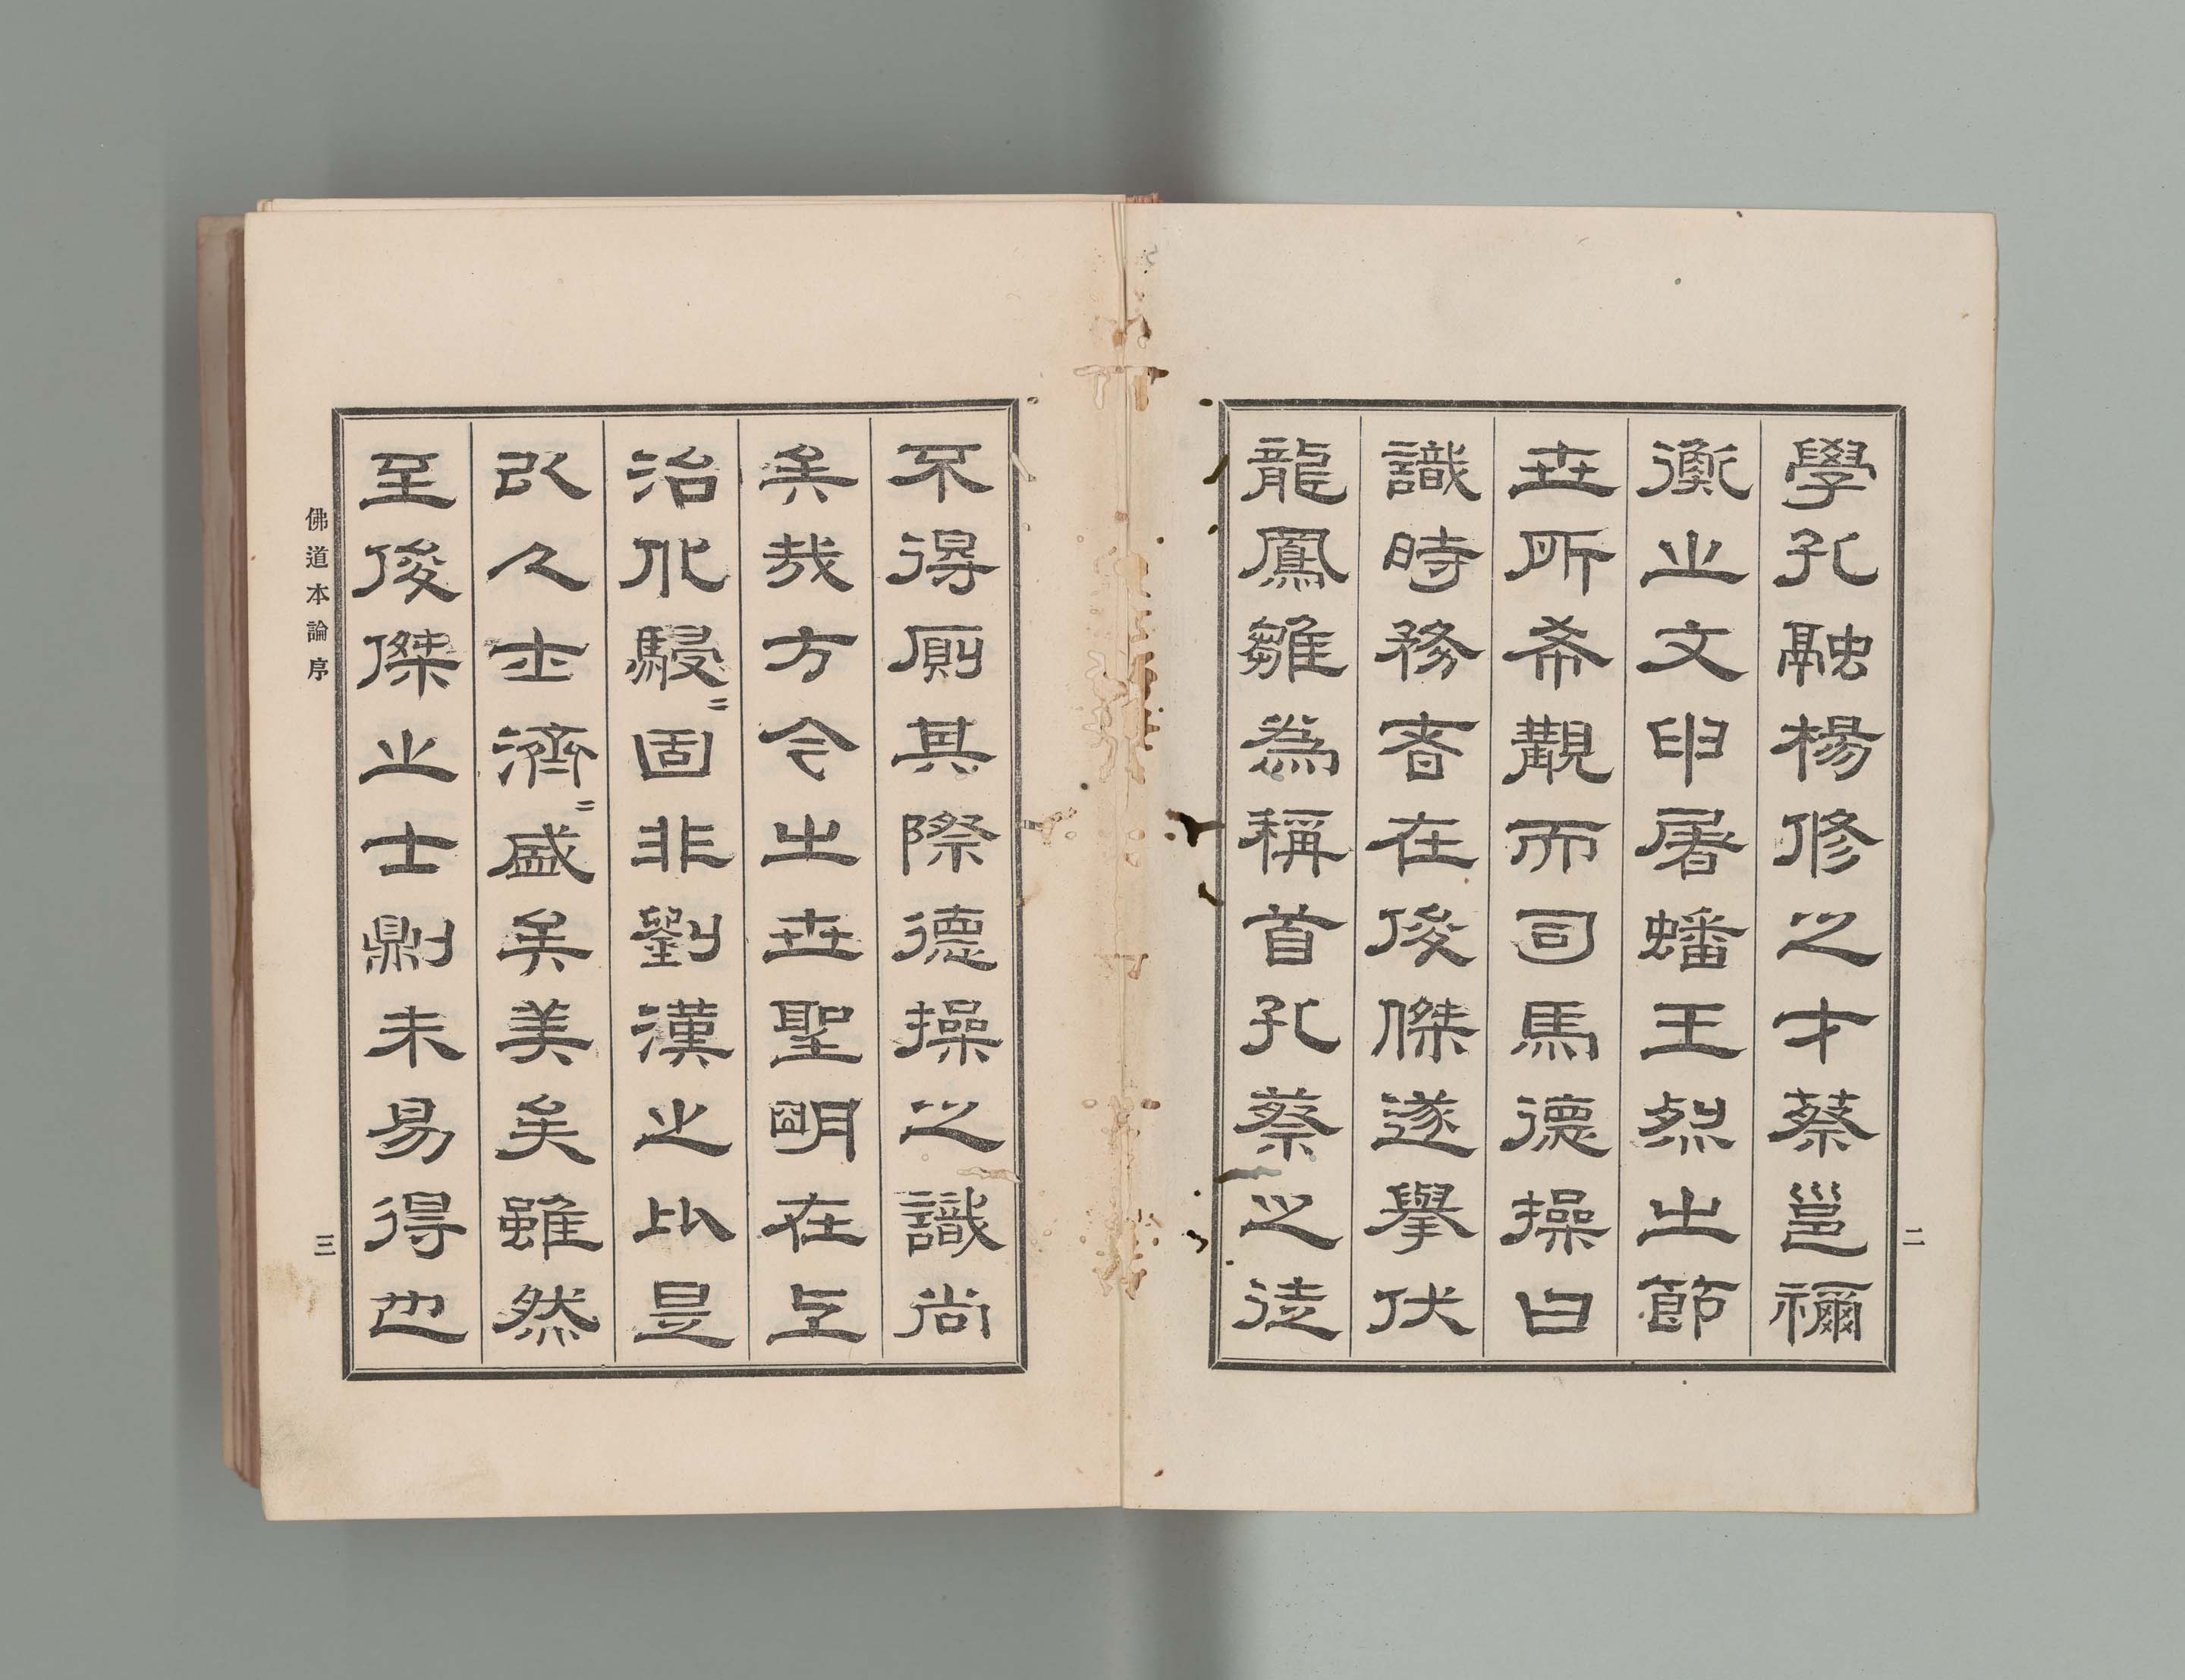 學孔融楊修之才蔡邕禰
衡之文申屠蟠王烈之節
世所希觀而司馬德操曰
識時務者在俊傑遂擧伏
龍鳳雛為稱首孔蔡之徒
二
不得厠其際德操之識尚
矣哉方今之世聖明在上
治化駸〻固非劉漢之比是
以人士濟〻盛矣美矣雖然
至俊傑之士則未易得也
佛道本論序
三